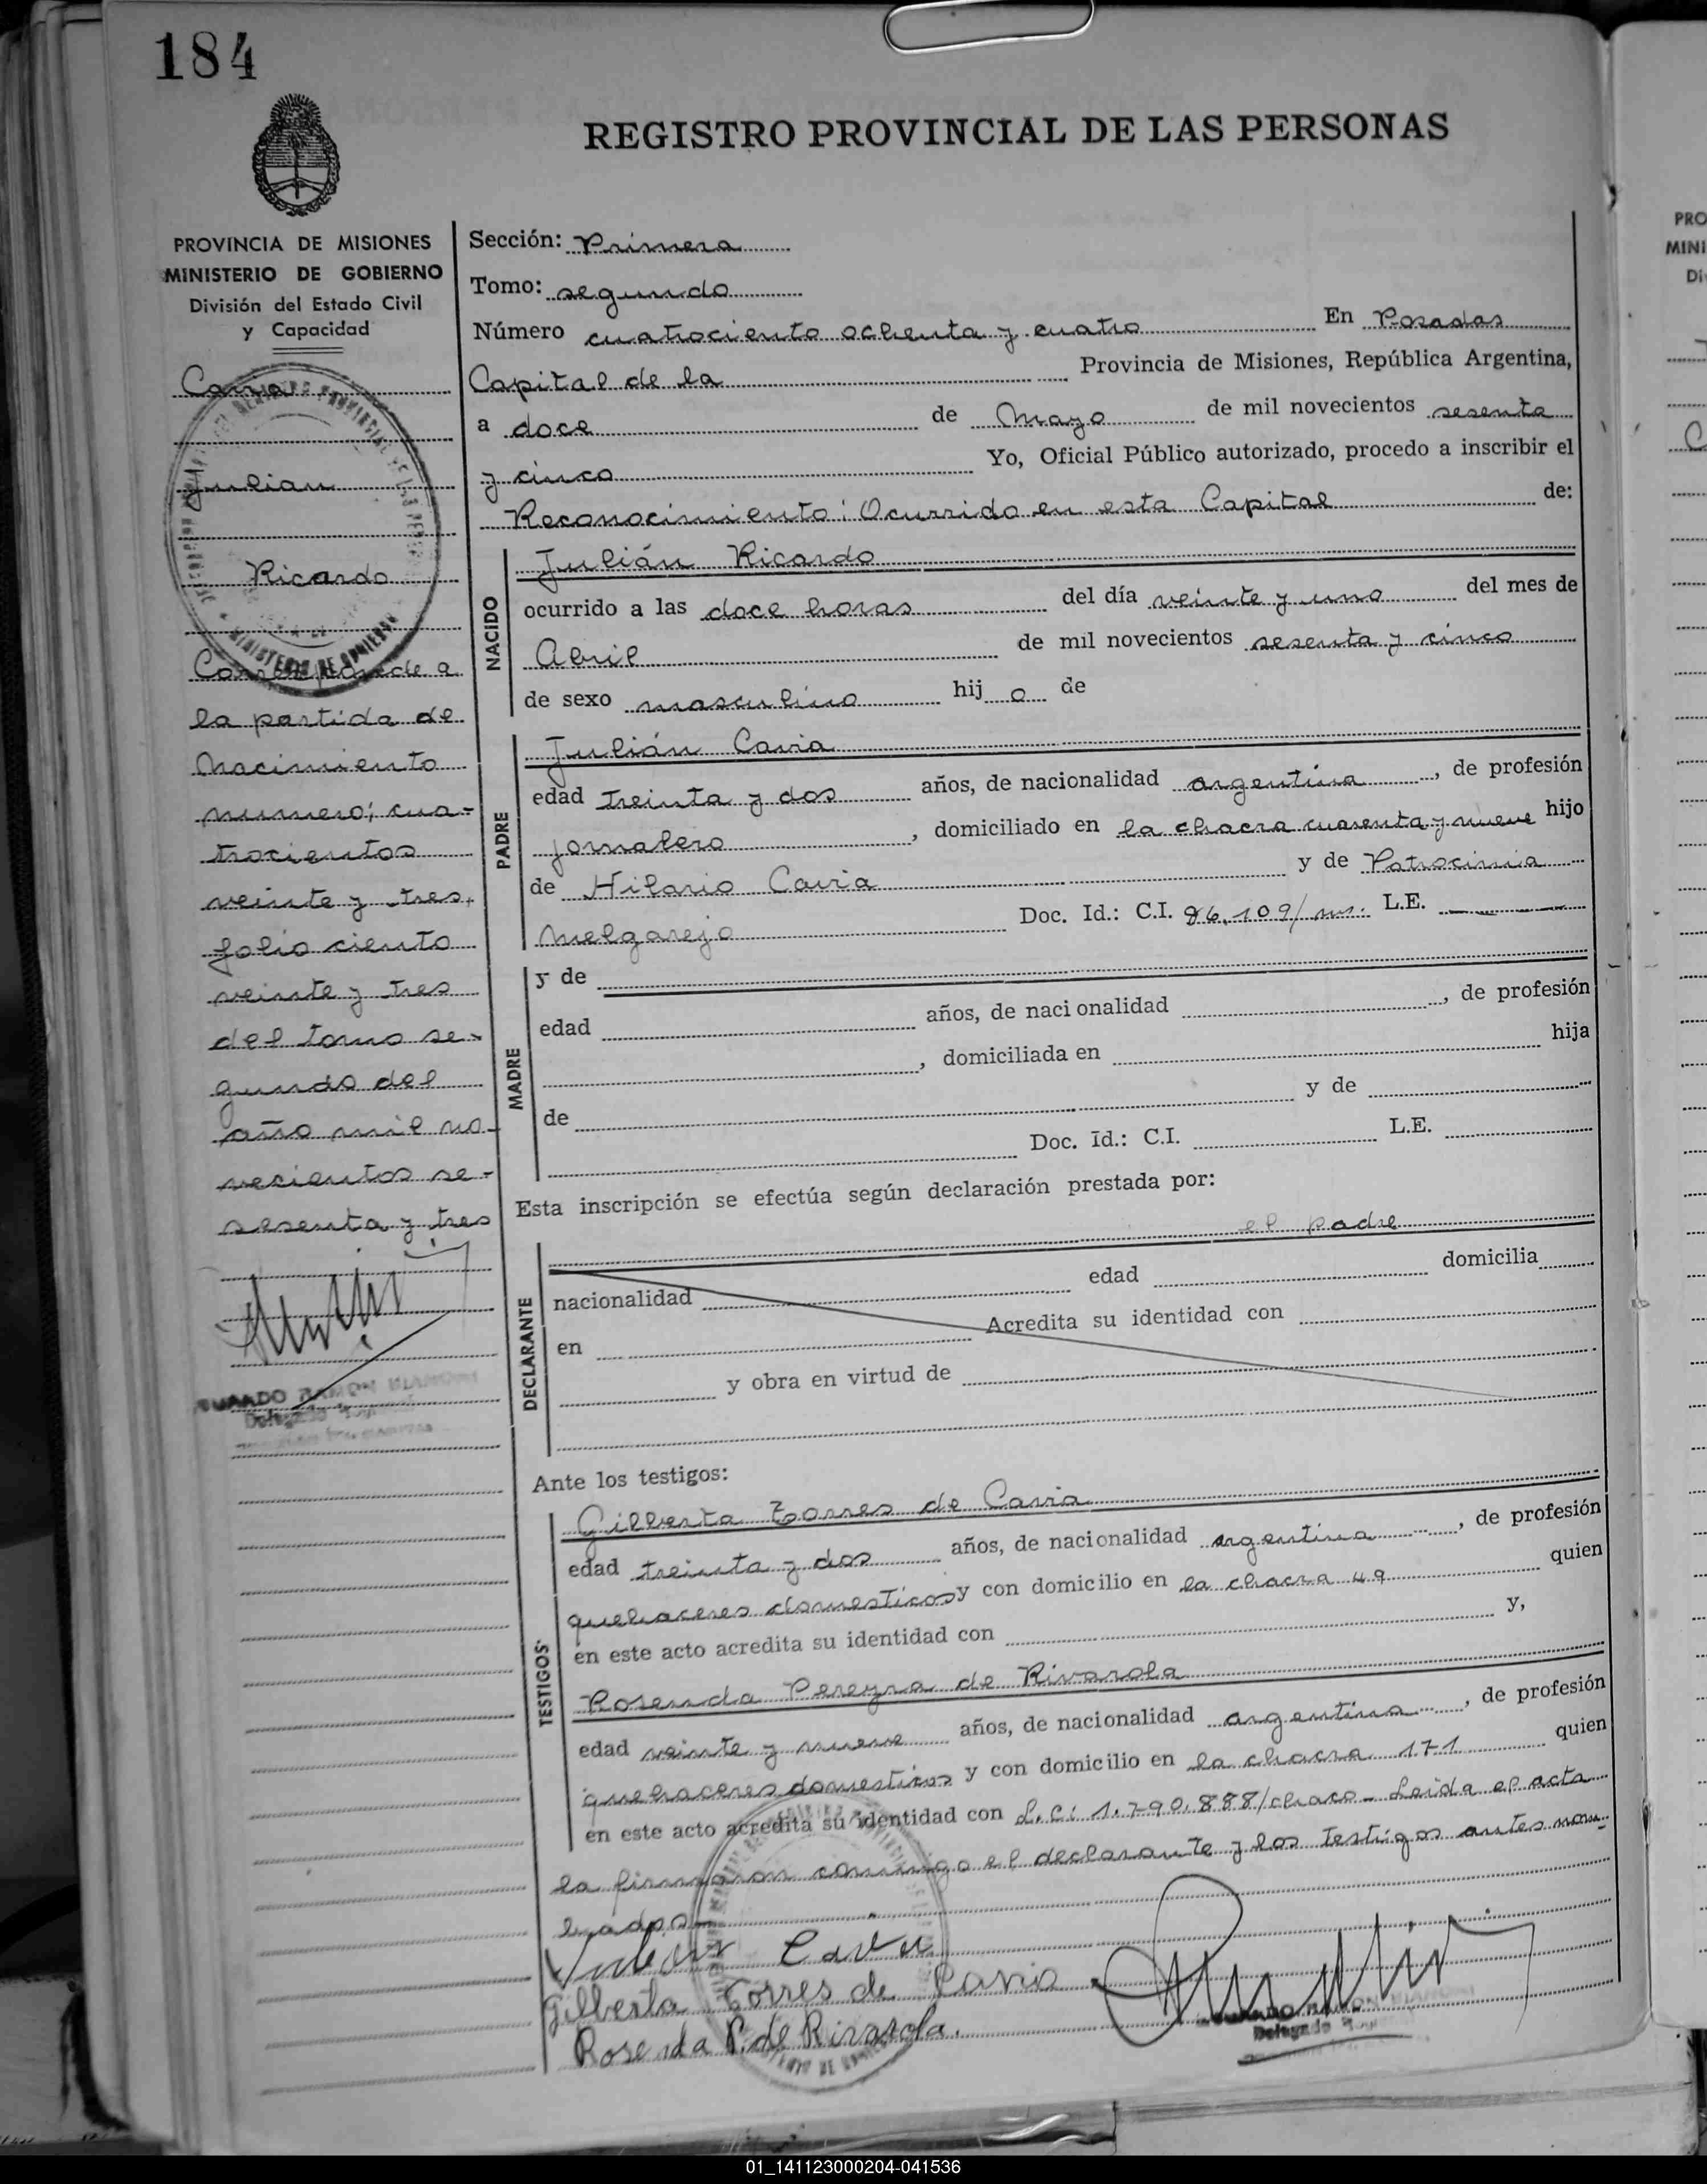 184
REGISTRO PROVINCIAL DE LAS PERSONAS
PROVINCIA DE MISIONES
MINISTERIO DE GOBIERNO
División del Estado Civil
y Capacidad
Cavia
Julian
Ricardo
Corresponde a
la partida de
Nacimiento
numero; cua-
trocientos
veinte y tres,
folio ciento
veinte y tres
del tomo se-
gundo del
año mil no-
vecientos se-
sesenta y tres
Sección: Primera
Tomo: segundo
Número cuatrociento ochenta y cuatro En Posadas
Capital de la Provincia de Misiones, República Argentina,
a doce de Mayo de mil novecientos sesenta
y cinco Yo, Oficial Público autorizado, procedo a inscribir el
Reconocimiento: Ocurrido en esta Capital de:
NACIDO
Julián Ricardo
ocurrido a las doce horas del día veinte y uno del mes de
Abril de mil novecientos sesenta y cinco
de sexo masculino hij o de
PADRE
Julián Cavia
edad treinta y dos años, de nacionalidad argentina, de profesión
jornalero, domiciliado en la chacra cuarenta y nueve hijo
de Hilario Cavia y de Patrocinia
Melgarejo Doc. Id.: C.I. 86.109/ms. L.E.
MADRE
y de
edad años, de nacionalidad , de profesión
, domiciliada en hija
de y de
Doc. Id.: C.I. L.E.
Esta inscripción se efectúa según declaración prestada por:
el padre
DECLARANTE
nacionalidad edad domicilia
en Acredita su identidad con
y obra en virtud de
Ante los testigos:
TESTIGOS
Gilberta Torres de Cavia
edad treinta y dos años, de nacionalidad argentina, de profesión
quehaceres domesticos y con domicilio en la chacra 49 quien
en este acto acredita su identidad con y,
Rosenda Pereyra de Rivarola
edad veinte y nueve años, de nacionalidad argentina, de profesión
quehaceres domesticos y con domicilio en la chacra 171 quien
en este acto acredita su identidad con L.C: 1.790.888/chaco- Leida el acta
la firmaron conmigo el declarante y los testigos antes nom-
brados
Julian Cavia
Gilberta Torres de Cavia
Rosenda P. de Rivarola.
RAMON
Delegado
MINISTERIO DE GOBIERNO
01_141123000204-041536